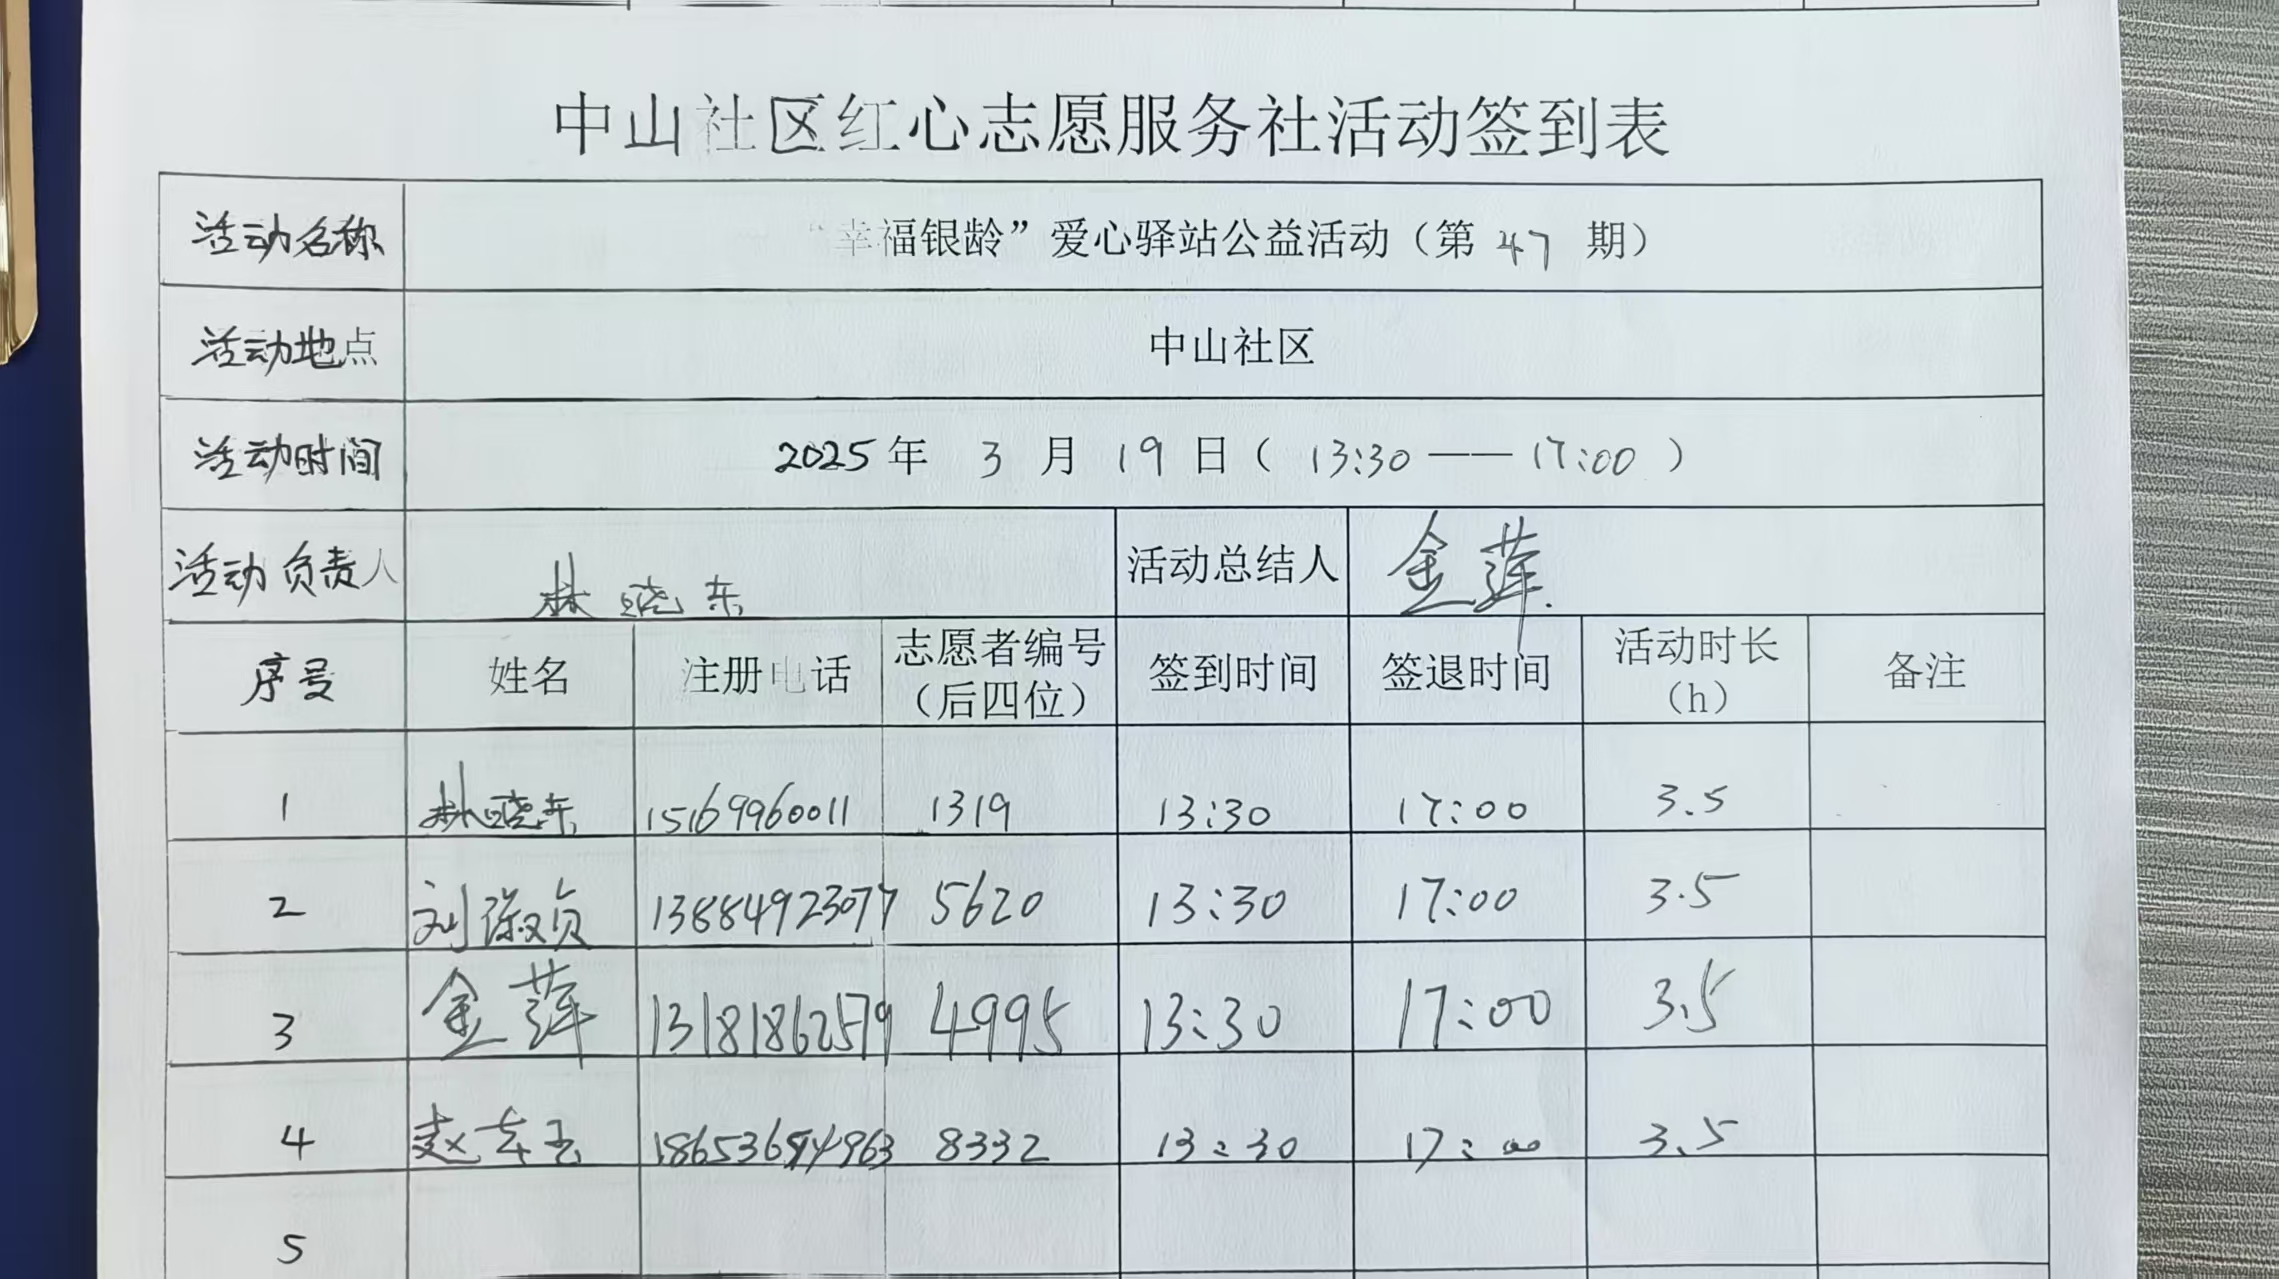 中山社区红心志愿服务社活动签到表
活动名称 “幸福银龄”爱心驿站公益活动（第 47 期）
活动地点 中山社区
活动时间 2025年 3 月 19 日（ 13:30 —— 17:00 ）
活动负责人 林晓东 活动总结人 金萍
序号 姓名 注册电话 志愿者编号（后四位） 签到时间 签退时间 活动时长（h） 备注
1 林晓东 15169960011 1319 13:30 17:00 3.5
2 刘淑贞 13884923077 5620 13:30 17:00 3.5
3 金萍 13181862579 4995 13:30 17:00 3.5
4 赵 8332 13:30 17:00 3.5
5